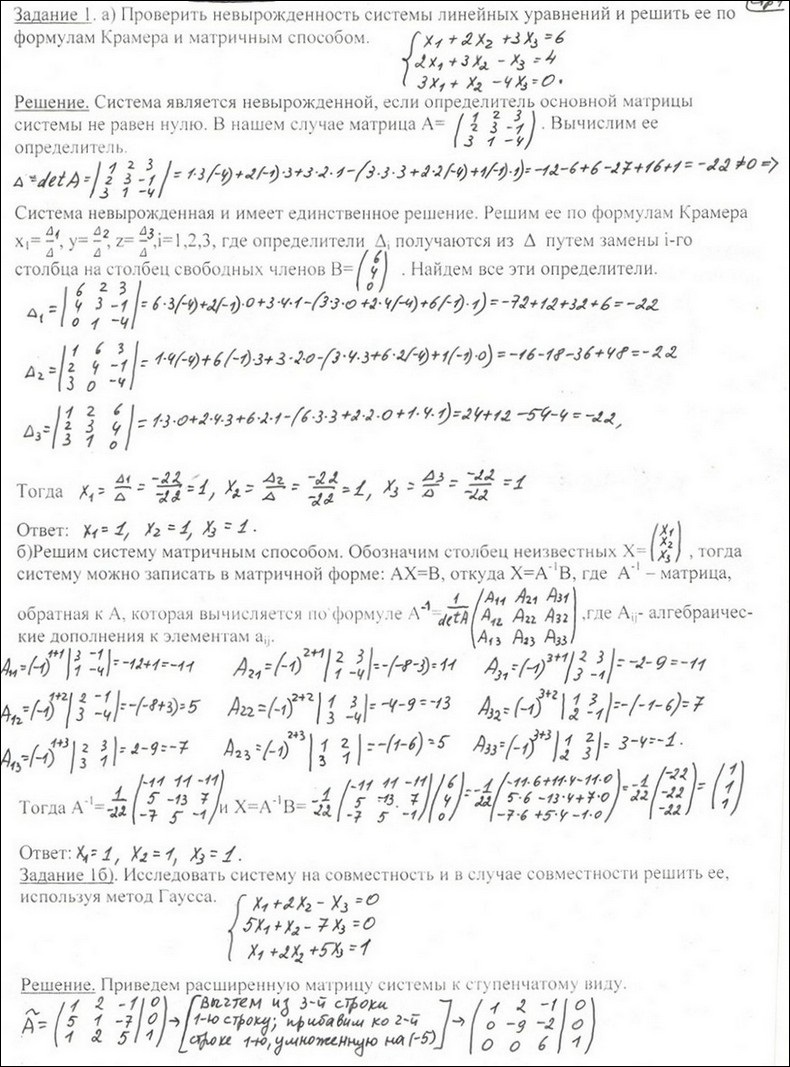 стр 1
Задание 1. а) Проверить невырожденность системы линейных уравнений и решить ее по
формулам Крамера и матричным способом. { x₁+2x₂+3x₃=6
2x₁+3x₂-x₃=4
3x₁+x₂-4x₃=0.
Решение. Система является невырожденной, если определитель основной матрицы
системы не равен нулю. В нашем случае матрица A= (1 2 3; 2 3 -1; 3 1 -4) . Вычислим ее
определитель.
Δ=detA=|1 2 3; 2 3 -1; 3 1 -4|=1·3(-4)+2(-1)·3+3·2·1-(3·3·3+2·2(-4)+1(-1)·1)=-12-6+6-27+16+1=-22≠0=>
Система невырожденная и имеет единственное решение. Решим ее по формулам Крамера
x₁=Δ1/Δ, y=Δ2/Δ, z=Δ3/Δ,i=1,2,3, где определители Δi получаются из Δ путем замены i-го
столбца на столбец свободных членов B=(6; 4; 0) . Найдем все эти определители.
Δ₁=|6 2 3; 4 3 -1; 0 1 -4|=6·3(-4)+2(-1)·0+3·4·1-(3·3·0+2·4(-4)+6(-1)·1)=-72+12+32+6=-22
Δ₂=|1 6 3; 2 4 -1; 3 0 -4|=1·4(-4)+6(-1)·3+3·2·0-(3·4·3+6·2(-4)+1(-1)·0)=-16-18-36+48=-22
Δ₃=|1 2 6; 2 3 4; 3 1 0|=1·3·0+2·4·3+6·2·1-(6·3·3+2·2·0+1·4·1)=24+12-54-4=-22,
Тогда x₁=Δ1/Δ=-22/-22=1, x₂=Δ2/Δ=-22/-22=1, x₃=Δ3/Δ=-22/-22=1
Ответ: x₁=1, x₂=1, x₃=1.
б)Решим систему матричным способом. Обозначим столбец неизвестных X=(x₁; x₂; x₃) , тогда
систему можно записать в матричной форме: AX=B, откуда X=A⁻¹B, где A⁻¹ – матрица,
обратная к A, которая вычисляется по формуле A⁻¹=1/detA (A11 A21 A31; A12 A22 A32; A13 A23 A33) ,где Aij- алгебраичес-
кие дополнения к элементам aij.
A11=(-1)¹⁺¹|3 -1; 1 -4|=-12+1=-11 A21=(-1)²⁺¹|2 3; 1 -4|=-(-8-3)=11 A31=(-1)³⁺¹|2 3; 3 -1|=-2-9=-11
A12=(-1)¹⁺²|2 -1; 3 -4|=-(-8+3)=5 A22=(-1)²⁺²|1 3; 3 -4|=-4-9=-13 A32=(-1)³⁺²|1 3; 2 -1|=-(-1-6)=7
A13=(-1)¹⁺³|2 3; 3 1|=2-9=-7 A23=(-1)²⁺³|1 2; 3 1|=-(1-6)=5 A33=(-1)³⁺³|1 2; 2 3|=3-4=-1.
Тогда A⁻¹=1/-22 (-11 11 -11; 5 -13 7; -7 5 -1) и X=A⁻¹B=-1/22 (-11 11 -11; 5 -13 7; -7 5 -1)(6; 4; 0)=-1/22 (-11·6+11·4-11·0; 5·6-13·4+7·0; -7·6+5·4-1·0)=-1/22 (-22; -22; -22)=(1; 1; 1)
Ответ: x₁=1, x₂=1, x₃=1.
Задание 1б). Исследовать систему на совместность и в случае совместности решить ее,
используя метод Гаусса. { x₁+2x₂-x₃=0
5x₁+x₂-7x₃=0
x₁+2x₂+5x₃=1
Решение. Приведем расширенную матрицу системы к ступенчатому виду.
Ã=(1 2 -1|0; 5 1 -7|0; 1 2 5|1)→[Вычтем из 3-й строки 1-ю строку; прибавим ко 2-й строке 1-ю, умноженную на (-5)]→(1 2 -1|0; 0 -9 -2|0; 0 0 6|1)